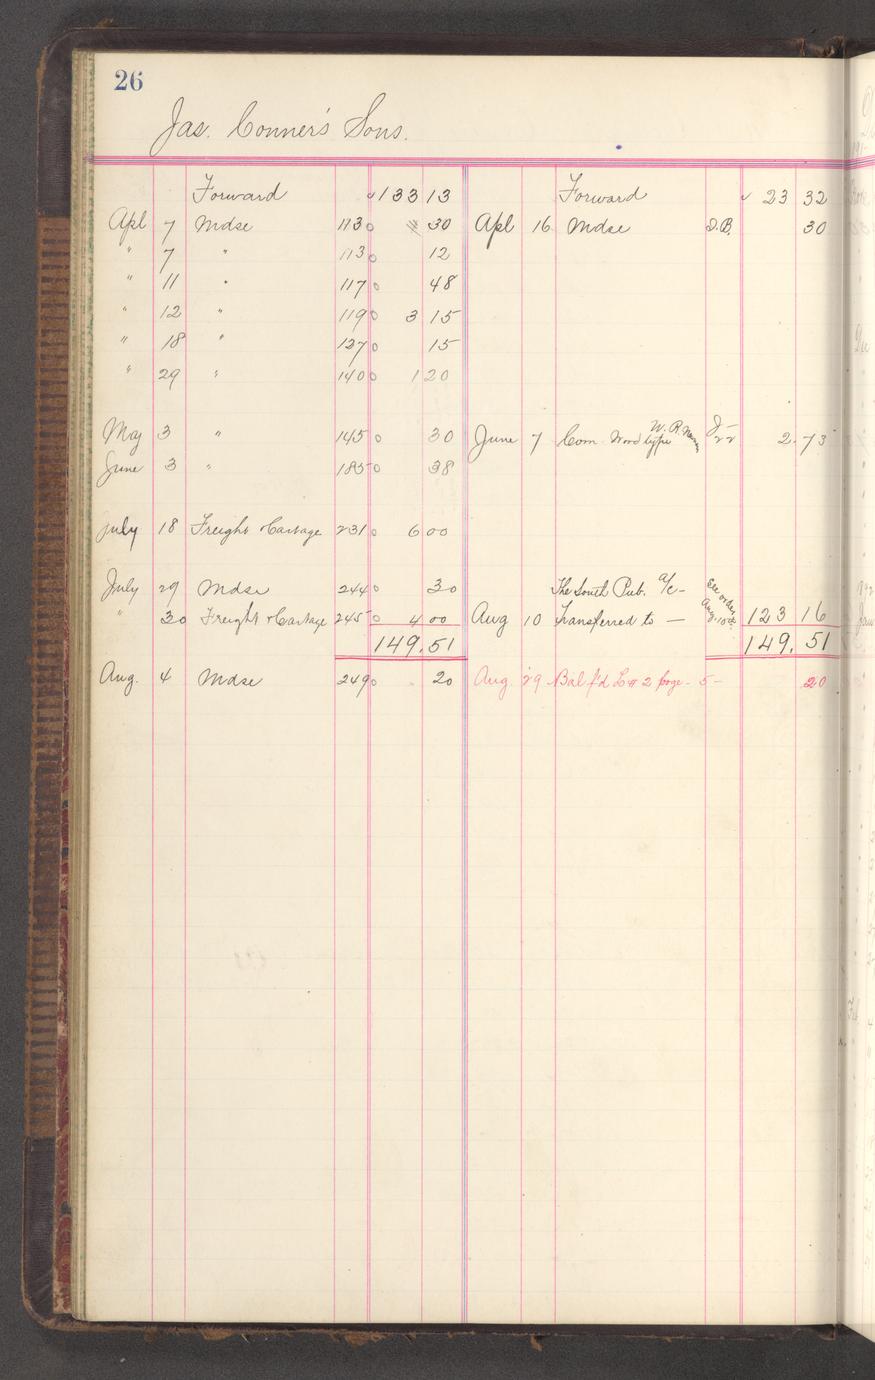 26
Jas. Conner's Sons.
Forward √ 133 13 Forward √ 23 32
Apl 7 Mdse 113 0 30 Apl 16 Mdse D.B. 30
" 7 " 113 0 12
" 11 " 117 0 48
" 12 " 119 0 3 15
" 18 " 127 0 15
" 29 " 140 0 1 20
W. R.
May 3 " 145 0 30 June 7 Com. Wood type J 22 2.73
June 3 " 185 0 38
July 18 Freight & Cartage 231 0 6 00
July 29 Mdse 244 0 30 The South Pub. a/c - See order Aug. 10th
" 30 Freight & Cartage 245 0 4 00 Aug 10 Transferred to — 123 16
149.51 149.51
Aug. 4 Mdse 249 0 20 Aug. 29 Bal f'd L # 2 page - 5 - 20